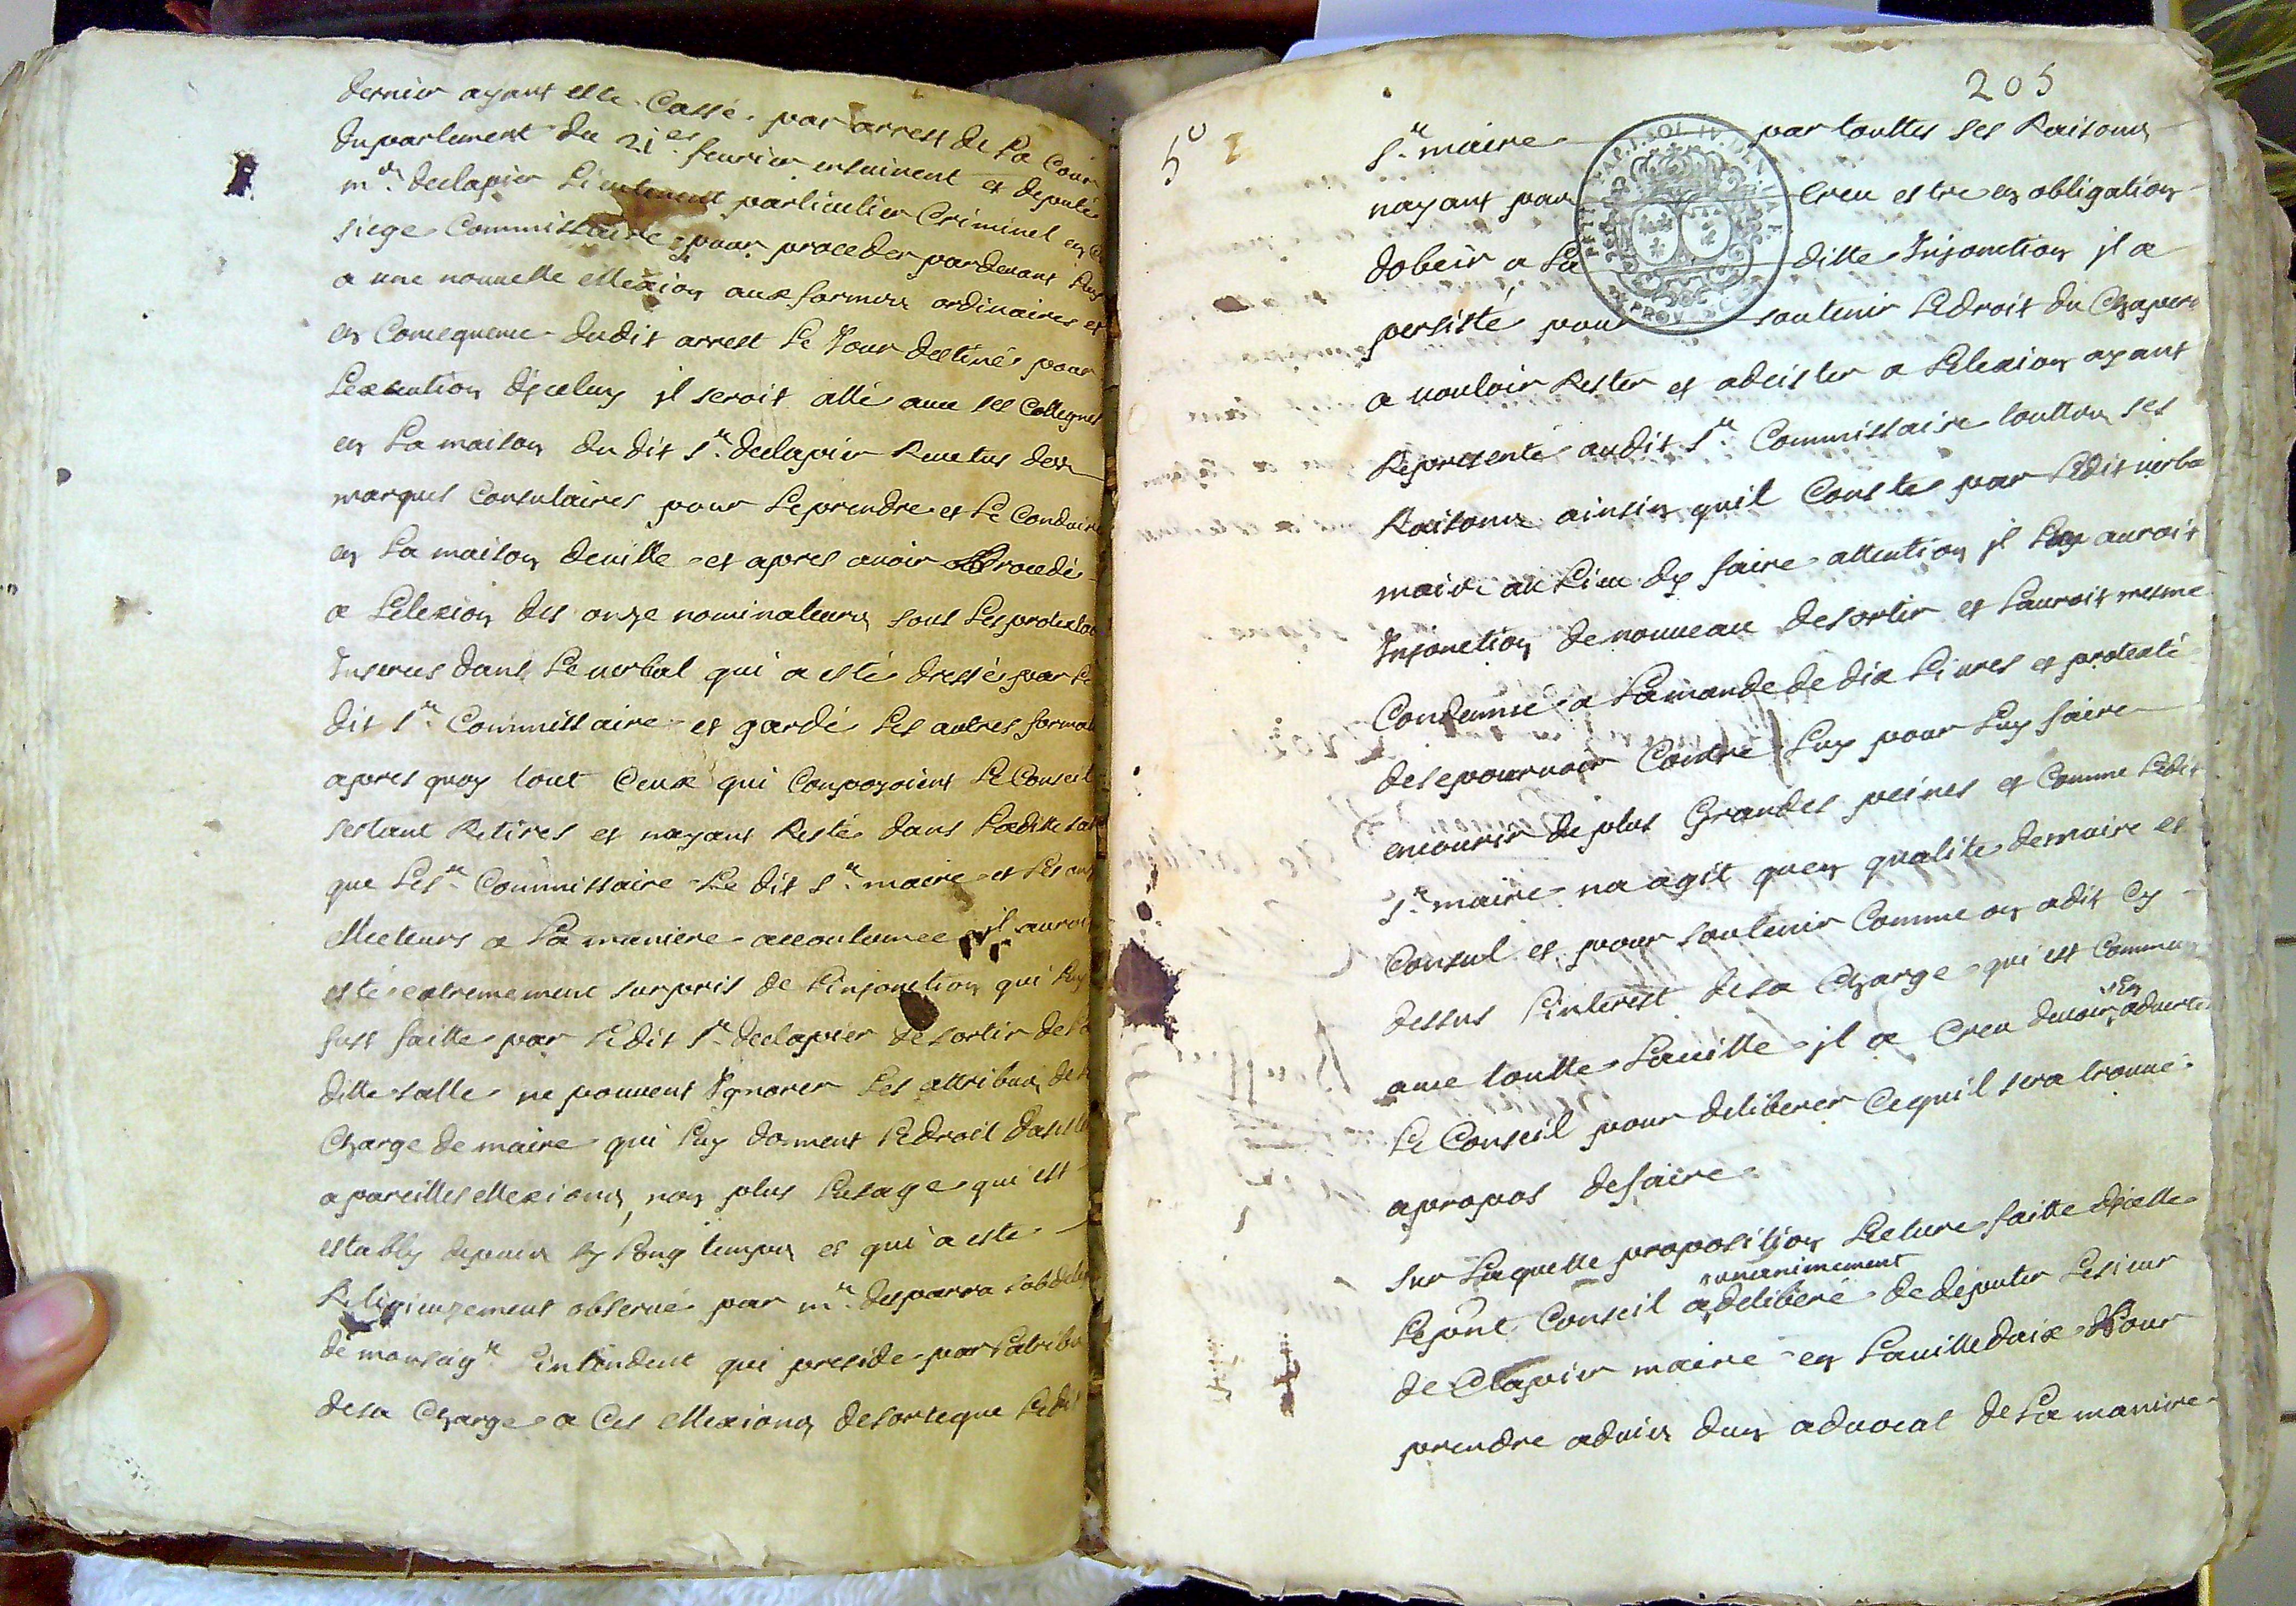 dernier ayant este Cassé par arrest de La Cour
du parlement du 21er feurier ensuiuent et deputé
mr declapier Lieutenent particulier Criminel en Ce
siege Commissaire pour proceder pardeuant Luy
a une nouuelle ellexion aux formes ordinaires et
en Consequence dudit arrest Le Jour destiné pour
Lexecution dicelluy il seroit allé auec ses Collegues
en La maison du dit Sr declapier Reuetus des
marques Consulaires pour Le prendre et Le Conduire
en La maison deuille et apres auoir procedé
a Lelexion des onze nominateurs sous Les protesta
Inserees dans Le uerbal qui a esté dressé par Le
dit Sr Commissaire et gardé Les autres formal
apres quoy tout Ceux qui Composoient Le Conseil
sestant Retires et nayant Resté dans Laditte salle
que Le Sr Commissaire Le dit Sr maire et Les onze
ellecteurs a La maniere accoutumee il auroit
esté extremement surpris de Linjonction qui Luy
fust faitte par Ledit Sr declapier de sortir de La
ditte salle ne pouuent Ignorer Les attribus de sa
Charge de maire qui Luy donnent Le droit dassister
a pareilles ellexions, non plus Lusage qui est
estably depuis sy Long temps et qui a este
Religieuzement obserué par mr desparra subdele
de monseigr Lintendent qui preside par Latribu
de sa Charge a Ces ellexions de sorte que Ledit
205
5e
Sr maire par touttes ses Raisons
nayant pas Creu estre en obligation
dobeir a La ditte Injonction il a
persisté pour soutenir Le droit du Chaperon
a uouloir Rester et adcister a Lelexion ayant
Representé audit Sr Commissaire touttes ses
Raisons ainsin quil Conste par Ledit uerbal
mais au Lieu dy faire attention il Luy auroit
Injonction de nouueau de sortir et Lauroit mesme
Condamné a Lamande de dix Liures et protesté
de se pouruoir Contre Luy pour Luy faire
encourir de plus Grandes peines et Comme Ledit
Sr maire na agit quen qualité de maire et
Consul et pour soutenir Comme on a dit Cy
dessus Linterest de sa Charge qui est Commun
auec toutte La uille il a Creu deuoir En aduertir
Le Conseil pour deliberer Ce quil sera trouué
a propos de faire
Sur Laquelle proposition Lecture faitte dicelle
Le pnt Conseil a unanimement deliberé de deputer Le sieur
de Clapier maire en La uille daix Pour
prendre aduis dun aduocat de La maniere